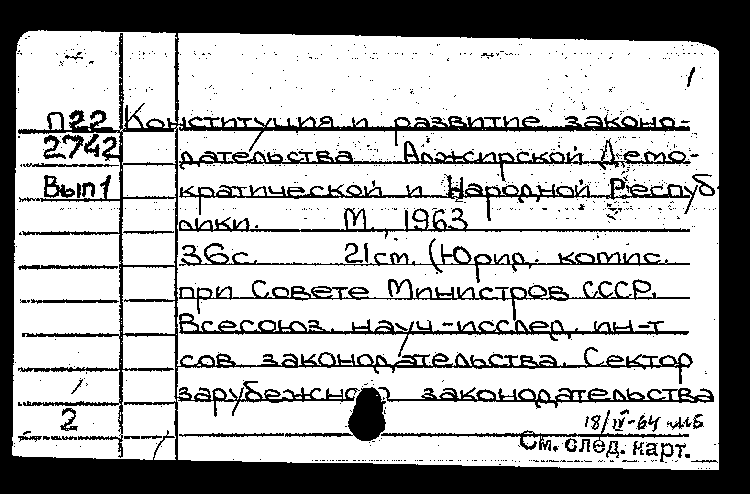 1
П22 Конституция и развитие законо-
2742 дательства Алжирской Демо-
Вып1 кратической и Народной Респуб-
лики. М., 1963
36с. 21см. (Юрид. комис.
при Совете Министров СССР.
Всесоюз. науч-исслед. ин-т
сов законодательства. Сектор
зарубежного законодательства
2 18/IV-64
См. след. карт.